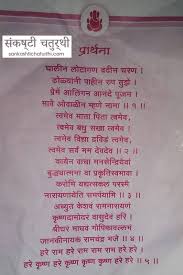 संकष्टी चतुर्थी
sankashtichaturthi.com
प्रार्थना
घालीन लोटांगण वंदीन चरण ।
डोळ्यांनी पाहीन रुप तुझे ।
प्रेमें आलिंगन आनंदे पूजन ।
भावें ओवाळीन म्हणे नामा ॥ १ ॥
त्वमेव माता पिता त्वमेव,
त्वमेव बंधु सखा त्वमेव ।
त्वमेव विद्या द्रविडं त्वमेव,
त्वमेव सर्वं मम देवदेव ॥ २ ॥
कायेन वाचा मनसेंद्रियेर्वा
बुद्ध्यात्मना वा प्रकृतिस्वभावा ।
करोमि यद्यत्सकलं परस्मै
नारायणायेति समर्पयामि ॥ ३ ॥
अच्युतं केशवं रामनारायणं
कृष्णदामोदरं वासुदेवं हरिं ।
श्रीधरं माधवं गोपिकावल्लभं
जानकीनायकं रामचंद्रं भजे ॥ ४ ॥
हरे राम हरे राम राम राम हरे हरे ।
हरे कृष्ण हरे कृष्ण कृष्ण कृष्ण हरे हरे ॥ ५ ॥